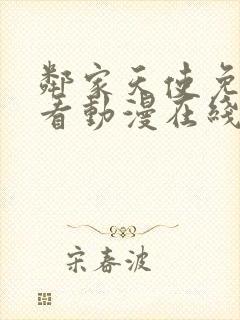 鄰家天使免
看動漫在綫
宋春波